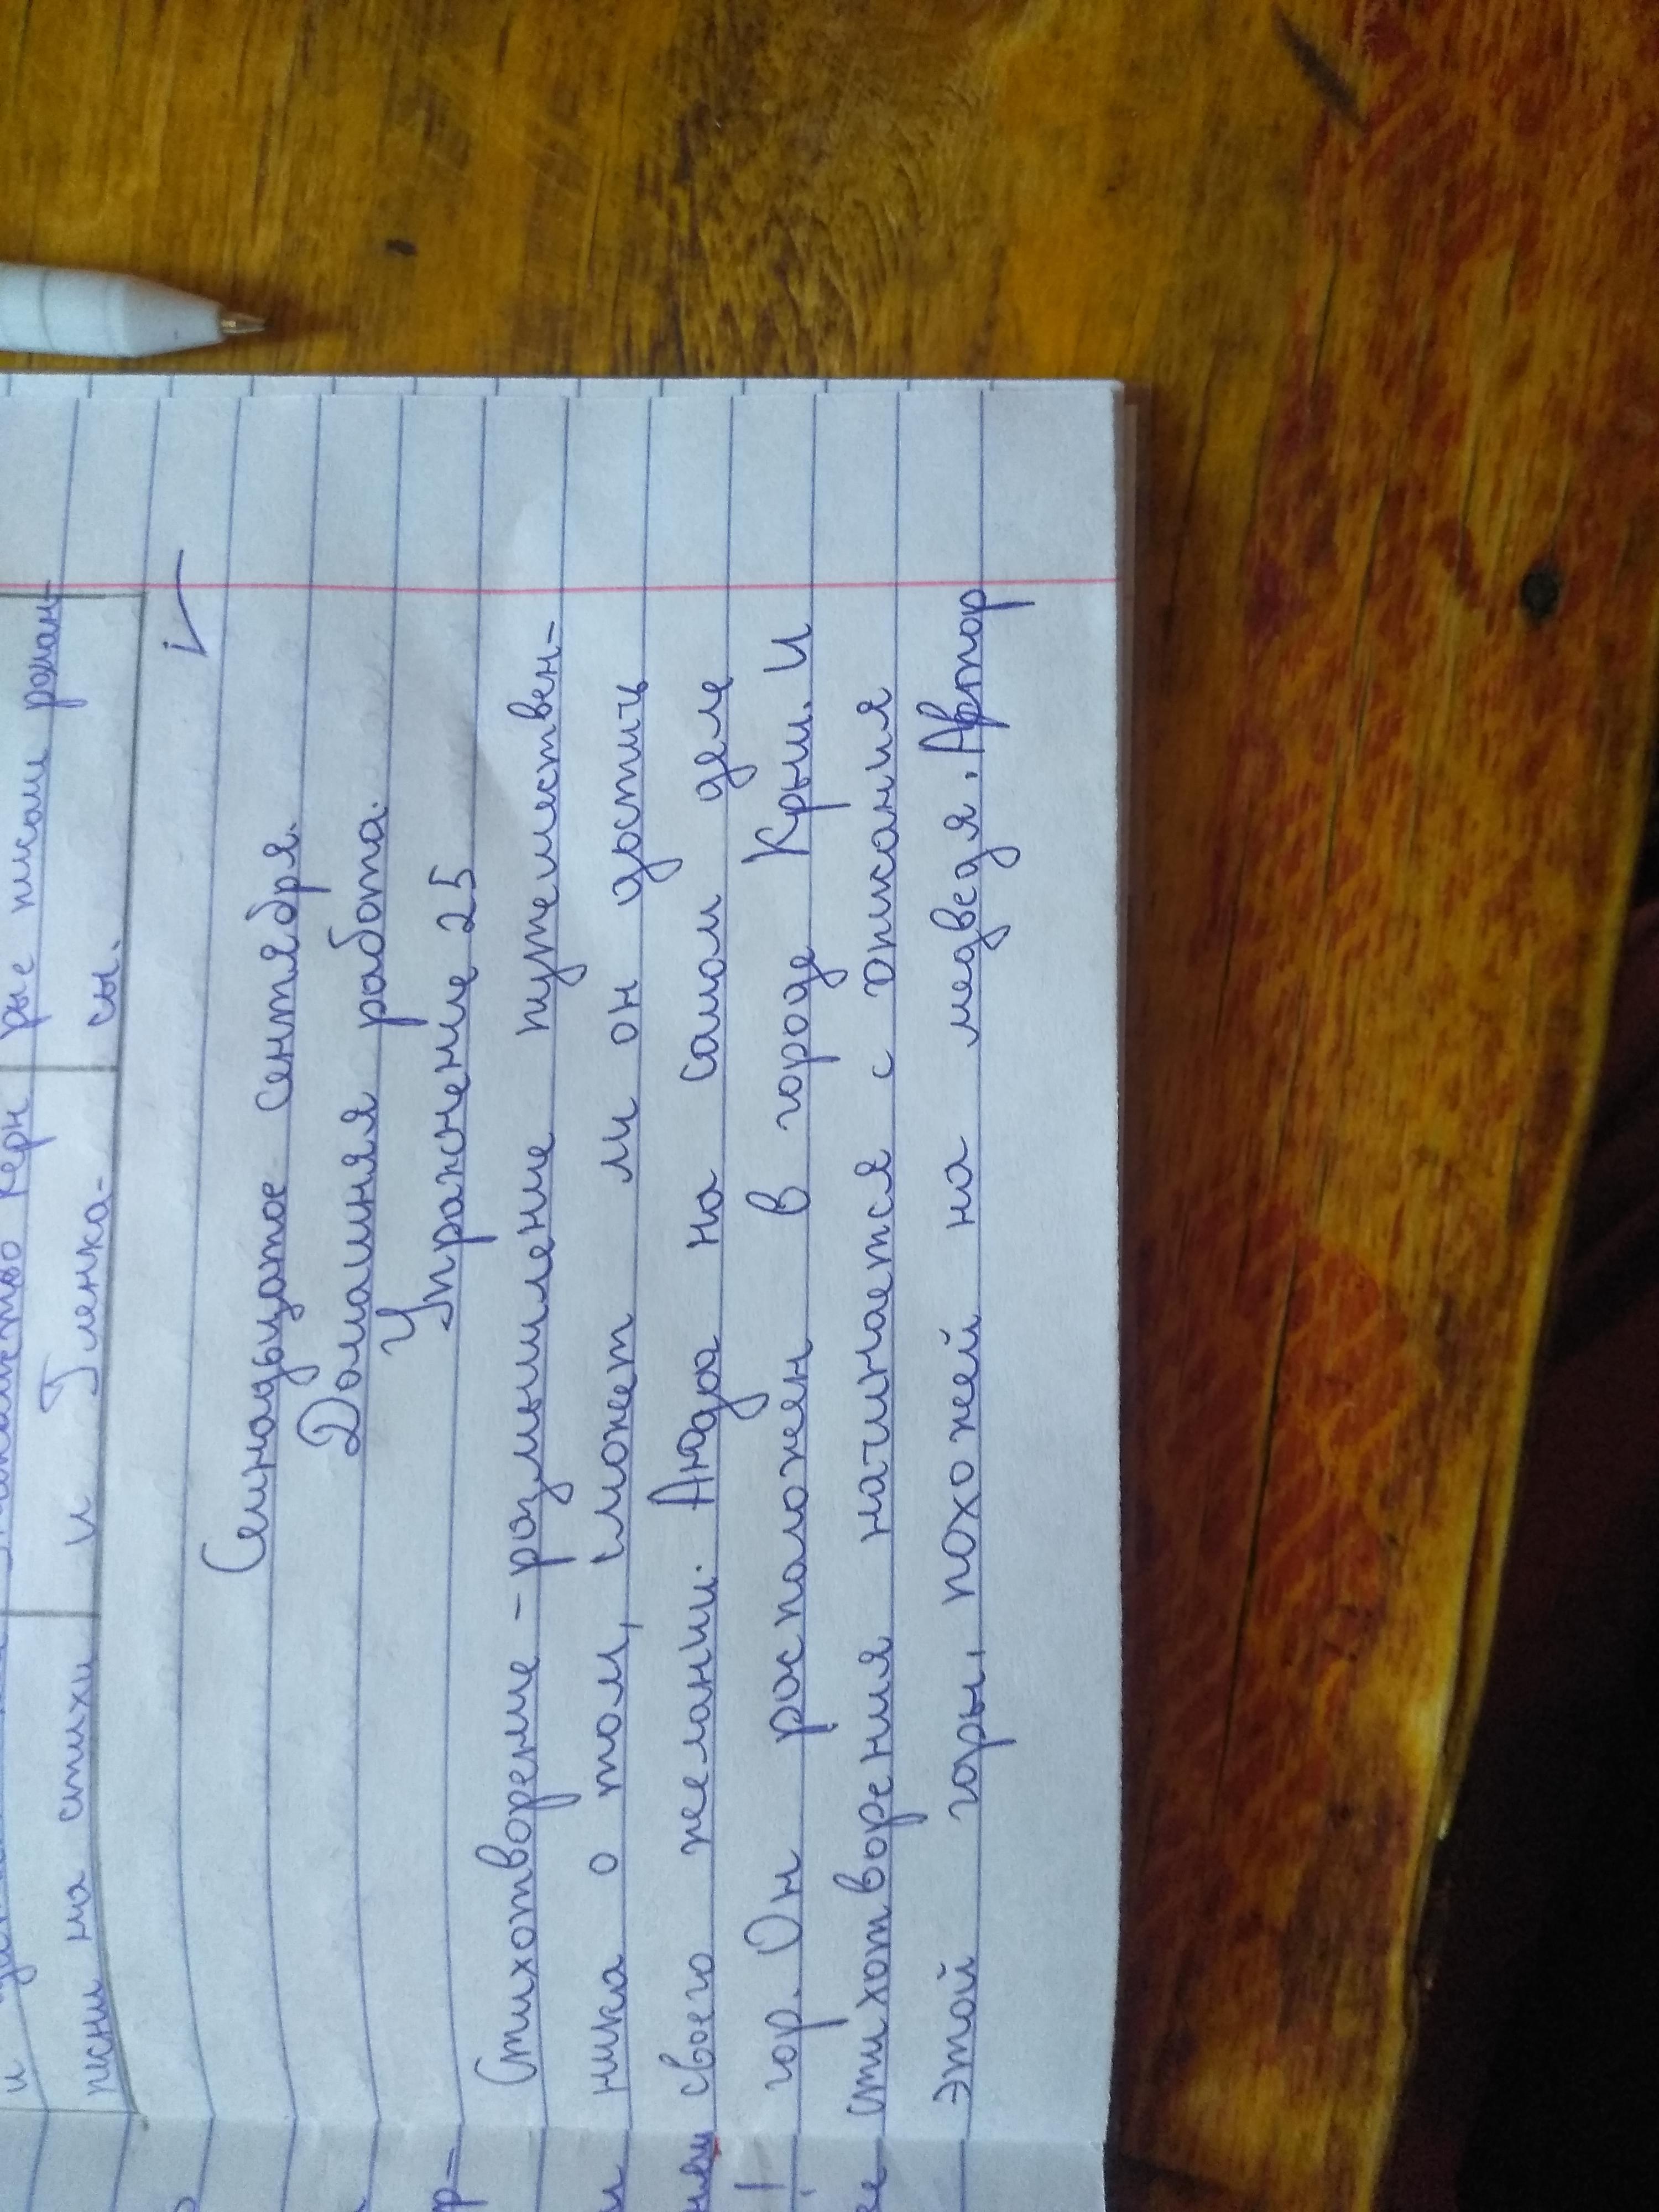 рые писал роман-
и Глинка- сы.
песни на стихи
Семнадцатое сентября.
Домашняя работа.
Упражнение 25
Стихотворение - размышление путешествен-
ника о том, сможет ли он достич
своего желании. Аюдаг на самом деле
гор. Он росположен в городе Крым. И
стихотворения начинается с описания
этой горы, похожей на медведя. Автор